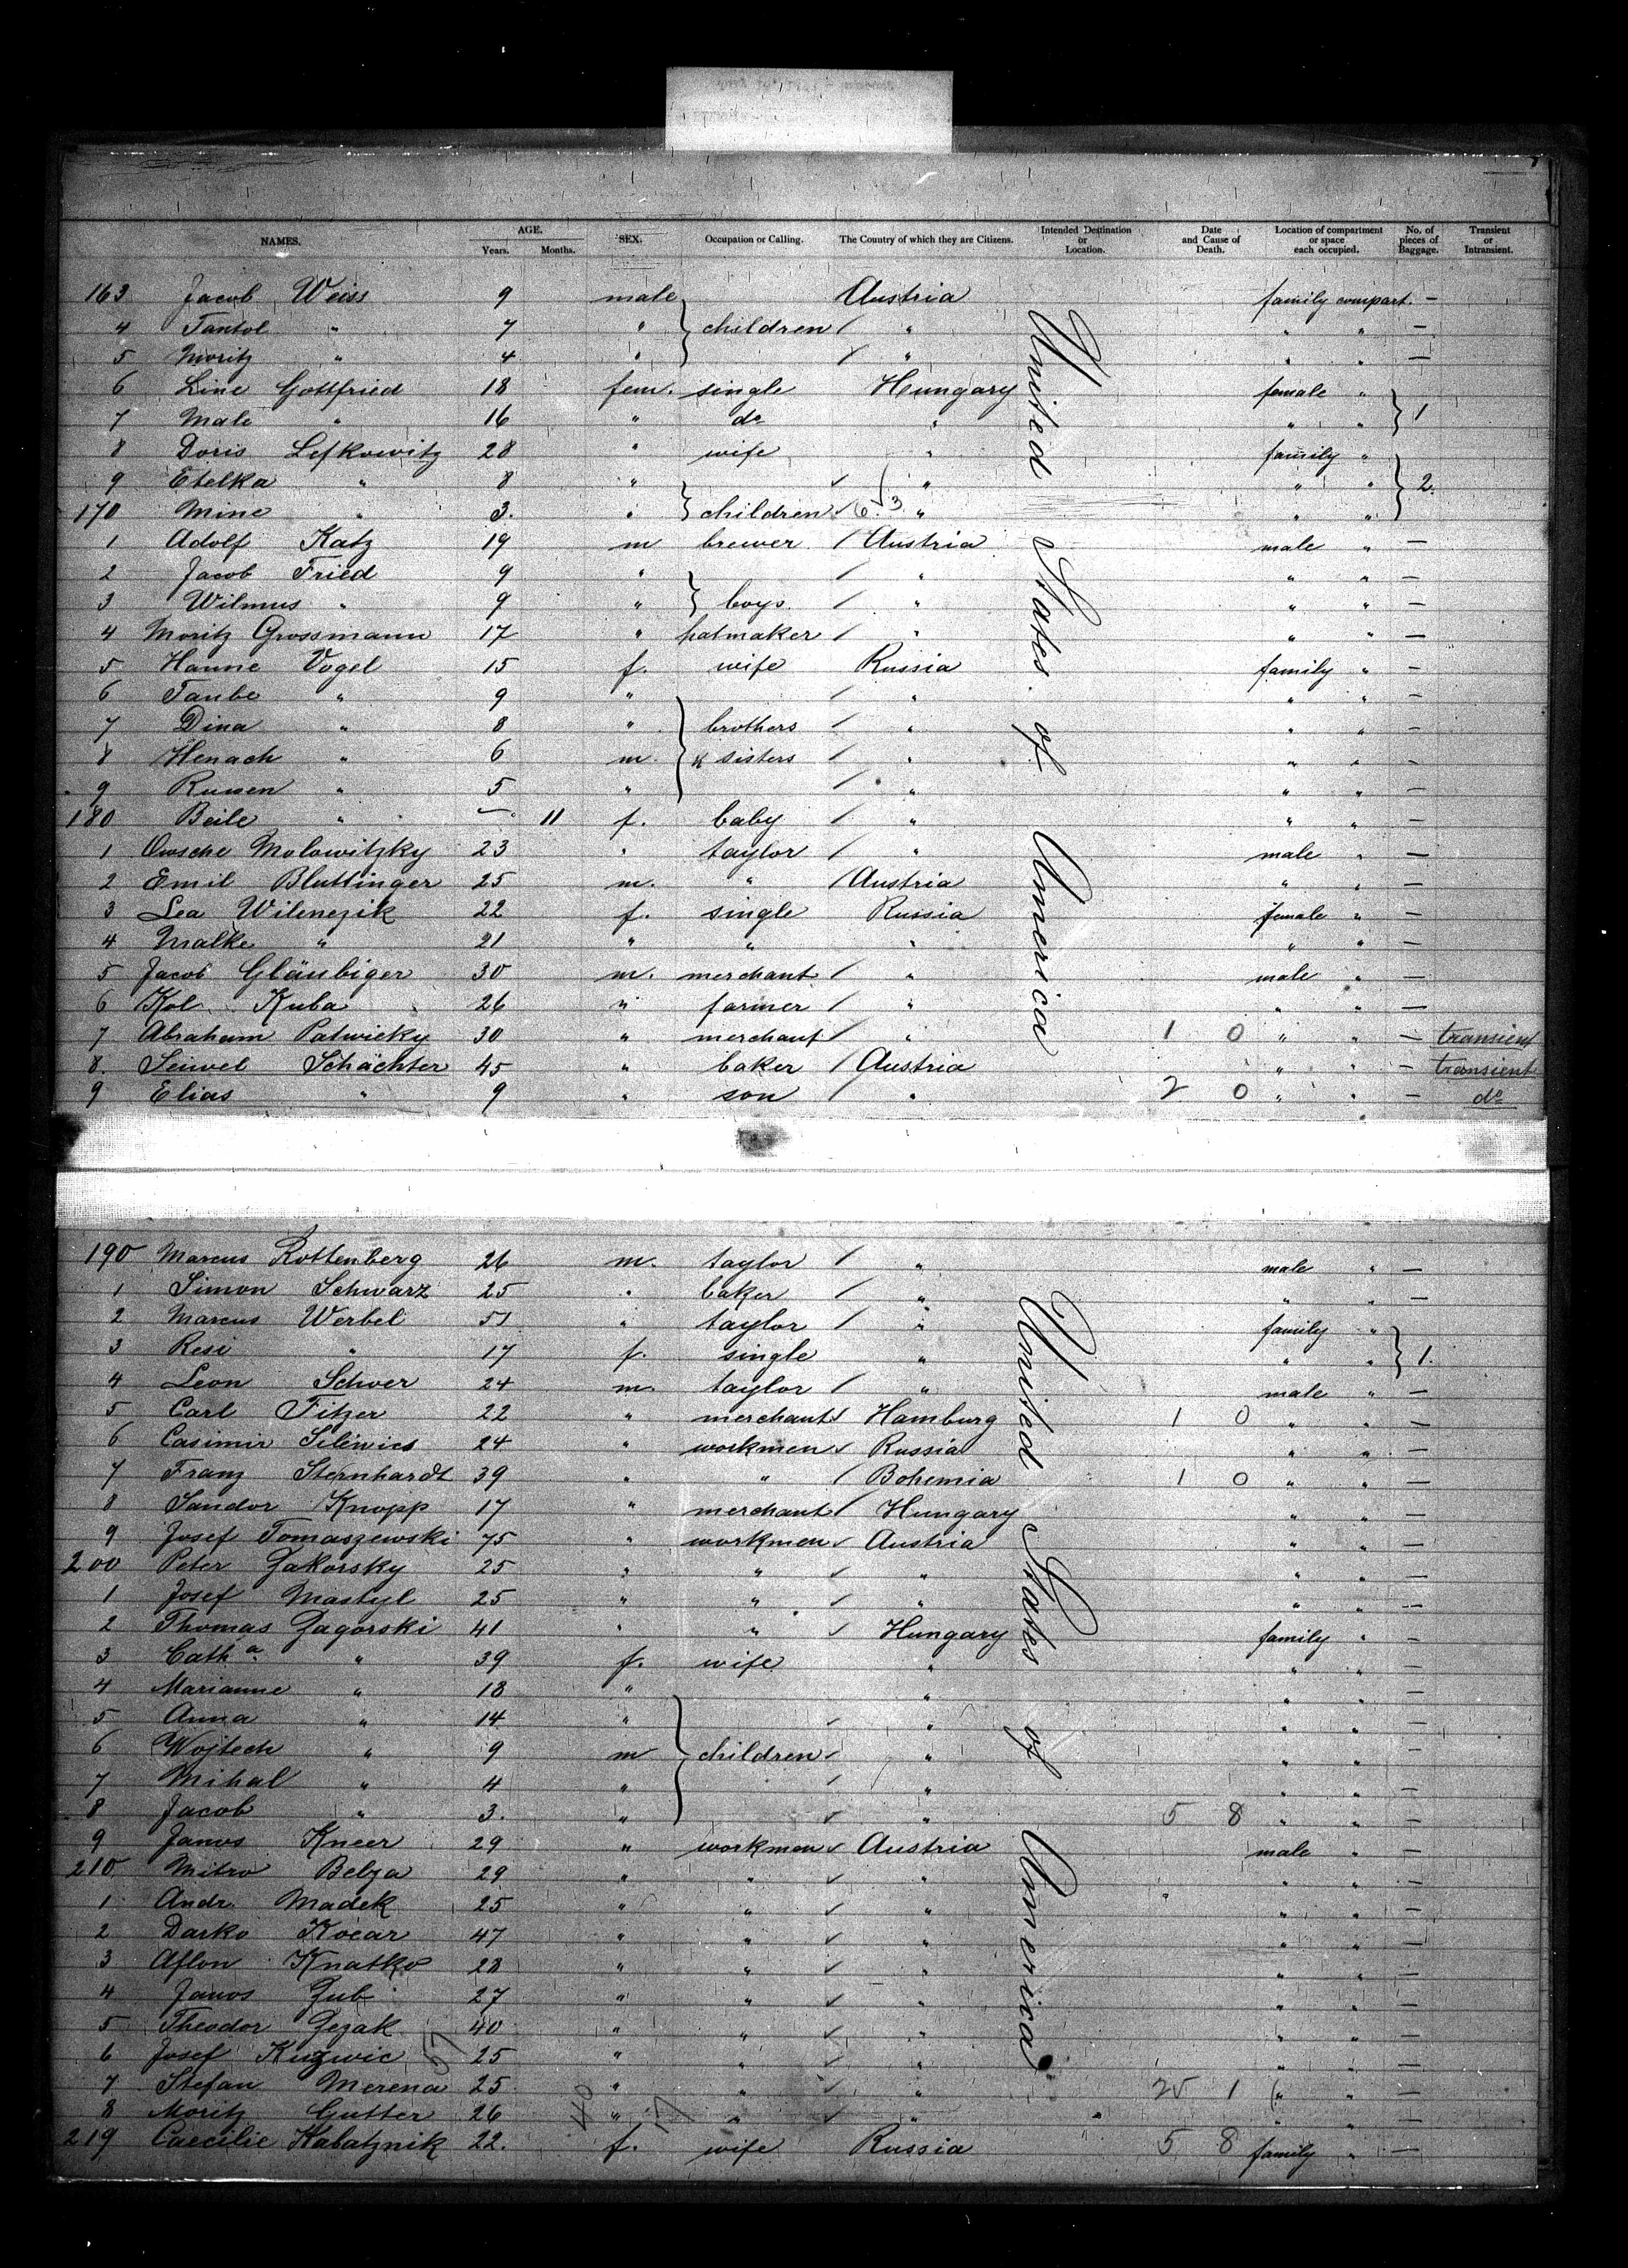 NAMES. AGE. Years. Months. SEX. Occupation or Calling. The Country of which they are Citizens. Intended Destination or Location. Date and Cause of Death. Location of compartment or space each occupied. No. of pieces of Baggage. Transient or Intransient.
163 Jacob Weiss 9 male Austria family compart. —
4 Tantol " 7 " children " " " —
5 Moritz " 4 " " " " —
6 Line Gottfried 18 fem. single Hungary female "
7 Male " 16 " do " " " 1
8 Doris Lefkowitz 28 " wife " family "
9 Etelka " 8 " " " " 2.
170 Mine " 3. " children 6.3. " " "
1 Adolf Katz 19 m brewer Austria male " —
2 Jacob Fried 9 " " " " —
3 Wilmus " 9 " boys. " " " —
4 Moritz Grossmann 17 " hatmaker " " " —
5 Hanne Vogel 15 f. wife Russia family " —
6 Taube " 9 " " " " —
7 Dina " 8 " brothers " " " —
8 Henach " 6 m. & sisters " " " —
9 Russen " 5 " " " " —
180 Beile " — 11 f. baby " " " —
1 Owsche Molowitzky 23 " taylor " male " —
2 Emil Bluttinger 25 m. " Austria " " —
3 Lea Wilenezik 22 f. single Russia female " —
4 Malke " 21 " " " " " —
5 Jacob Gläubiger 30 m. merchant " male " —
6 Kol. Kuba 26 " farmer " " " —
7 Abraham Patwicky 30 " merchant " 1 0 " " — transient
8. Seiwel Schächter 45 " baker Austria " " — transient
9 Elias " 9 " son " 2 0 " " — do
190 Marcus Rottenberg 26 m. taylor " male " —
1 Simon Schwarz 25 " baker " " " —
2 Marcus Werbel 51 " taylor " family "
3 Resi " 17 f. single " " " 1.
4 Leon Schver 24 m. taylor " male " —
5 Carl Fitzer 22 " merchant Hamburg 1 0 " " —
6 Casimir Silewics 24 " workmen Russia " " —
7 Franz Sternhardt 39 " " Bohemia 1 0 " " —
8 Sandor Knopp 17 " merchant Hungary " " —
9 Josef Tomaszewski 75 " workmen Austria " " —
200 Peter Zakorsky 25 " " " " " —
1 Josef Mastyl 25 " " " " " —
2 Thomas Zagorski 41 " " Hungary family " —
3 Catha " 39 f. wife " " " —
4 Marianne " 18 " " " " —
5 Anna " 14 " " " " —
6 Wojtech " 9 m children " " " —
7 Mihal " 4 " " " " —
8 Jacob " 3. " " 5 8 " " —
9 Janos Kneer 29 " workmen Austria male " —
210 Mitro Belza 29 " " " " " —
1 Andr. Madek 25 " " " " " —
2 Darko Kocar 47 " " " " " —
3 Aflon Knatko 28 " " " " " —
4 Janos Zub 27 " " " " " —
5 Theodor Zezak 40 " " " " " —
6 Josef Kuzwic 25 " " " " " —
7 Stefan Merena 25 " " " 25 1 " " —
8 Moritz Gutter 26 " " " " " —
219 Caecilie Kabatznik 22. f. wife Russia 5 8 family " —
United States of America
United States of America
51
40
17